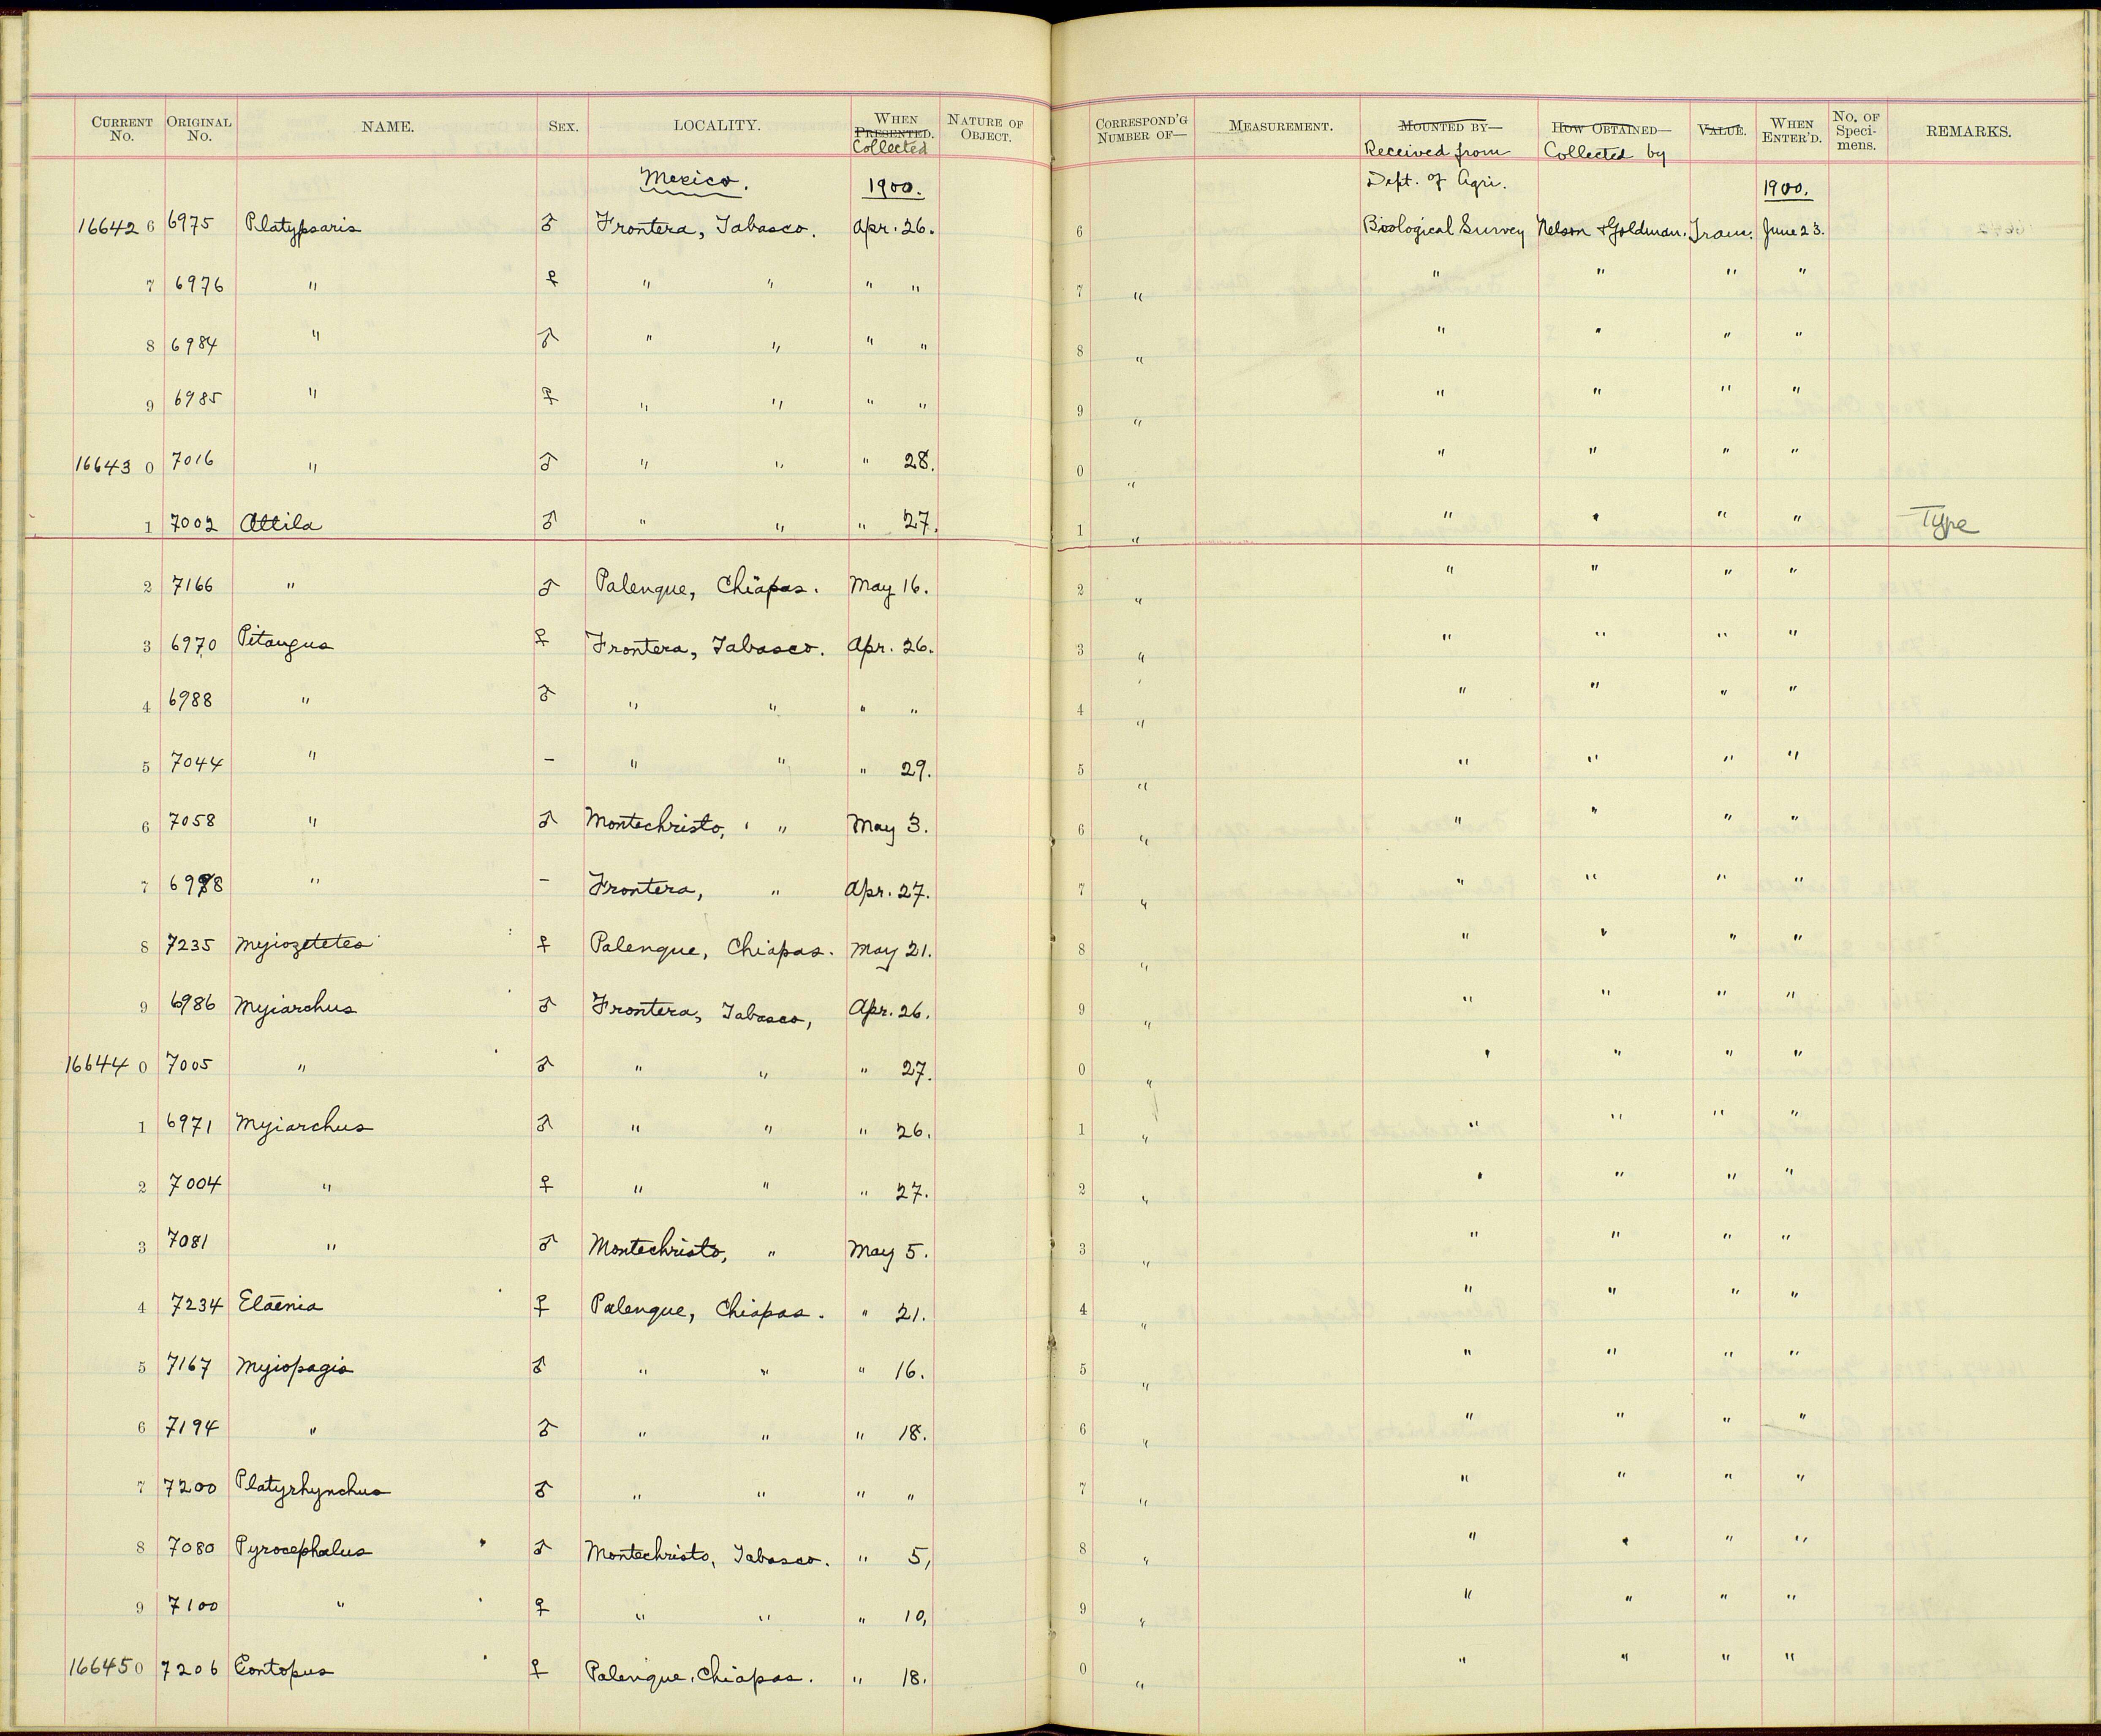 CURRENT No. ORIGINAL No. NAME. SEX. LOCALITY. WHEN PRESENTED. Collected NATURE OF OBJECT. CORRESPOND'G NUMBER OF— MEASUREMENT. MOUNTED BY— Received from HOW OBTAINED— Collected by VALUE. WHEN ENTER'D. No. OF Speci-mens. REMARKS.
Mexico. 1900. Dept. of Agri. 1900.
16642 6 6975 Platypsaris ♂ Frontera, Tabasco. Apr. 26. 6 Biological Survey Nelson & Goldman. Tran. June 23.
7 6976 " ♀ " " " " 7 " " " " "
8 6984 " ♂ " " " " 8 " " " " "
9 6985 " ♀ " " " " 9 " " " " "
16643 0 7016 " ♂ " " " 28. 0 " " " " "
1 7002 Attila ♂ " " " 27. 1 " " " " " Type
2 7166 " ♂ Palenque, Chiapas. May 16. 2 " " " " "
3 6970 Pitangus ♀ Frontera, Tabasco. Apr. 26. 3 " " " " "
4 6988 " ♂ " " " " 4 " " " " "
5 7044 " – " " " 29. 5 " " " " "
6 7058 " ♂ Montechristo, " May 3. 6 " " " " "
7 6998 " – Frontera, " Apr. 27. 7 " " " " "
8 7235 Myiozetetes ♀ Palenque, Chiapas. May 21. 8 " " " " "
9 6986 Myiarchus ♂ Frontera, Tabasco, Apr. 26. 9 " " " " "
16644 0 7005 " ♂ " " " 27. 0 " " " " "
1 6971 Myiarchus ♂ " " " 26. 1 " " " " "
2 7004 " ♀ " " " 27. 2 " " " " "
3 7081 " ♂ Montechristo, " May 5. 3 " " " " "
4 7234 Elaenia ♀ Palenque, Chiapas. " 21. 4 " " " " "
5 7167 Myiopagis ♂ " " " 16. 5 " " " " "
6 7194 " ♂ " " " 18. 6 " " " " "
7 7200 Platyrhynchus ♂ " " " " 7 " " " " "
8 7080 Pyrocephalus ♂ Montechristo, Tabasco. " 5, 8 " " " " "
9 7100 " ♀ " " " 10, 9 " " " " "
16645 0 7206 Contopus ♀ Palenque, Chiapas. " 18. 0 " " " " "